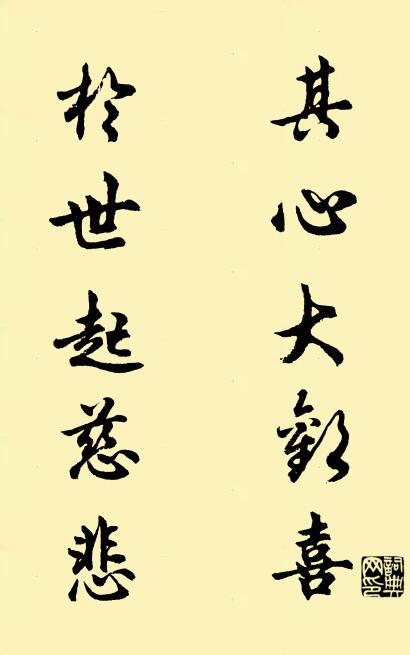 其心大歡喜
於世起慈悲
詞典網印